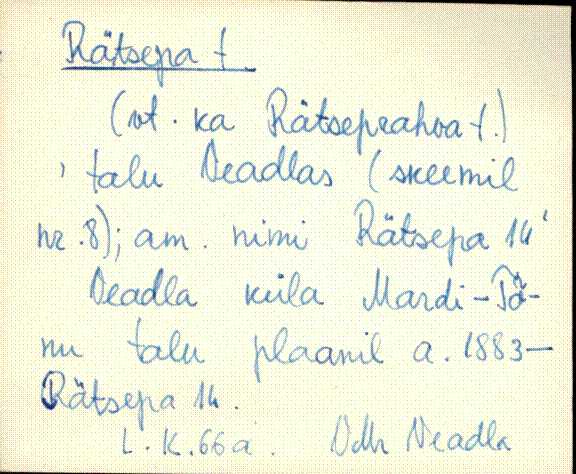 Rätsepa t.
(vt. ka Rätseprahva t.)
' talu Neadlas (skeemil
nr. 8); am. nimi Rätsepa 14'
Neadla küla Mardi-Tõ-
nu talu plaanil a. 1883—
Rätsepa 14.
L.K. 66 a. Neadla